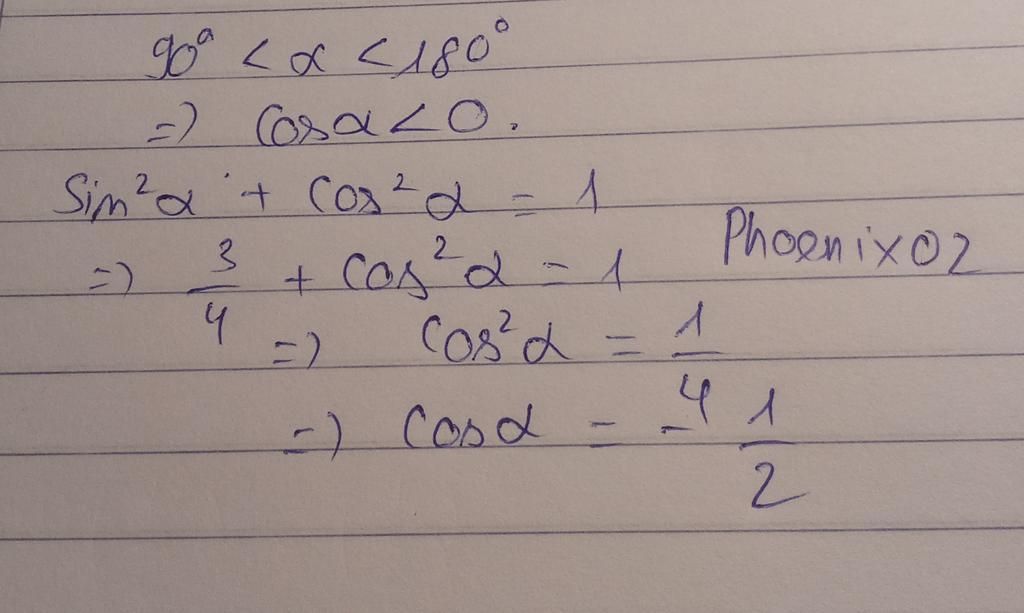 90° < α < 180°
=> Cosα < 0.
Sin²α + Cos²α = 1
=> 3/4 + Cos²α = 1
Phoenix02
=> Cos²α = 1/4
=> Cosα = -1/2